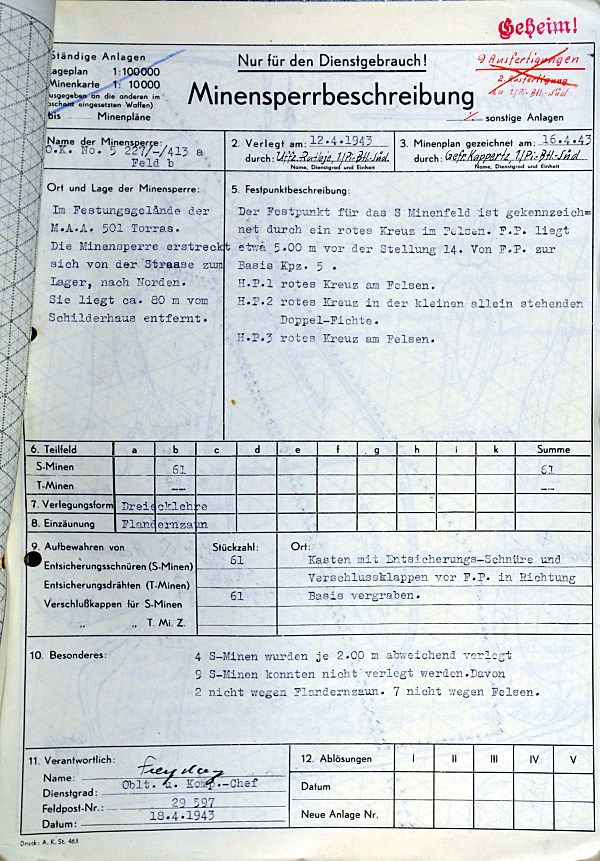 Geheim!
ständige Anlagen
Lageplan 1:100000
Minenkarte 1: 10000
(ausgegeben an die anderen im
Abschnitt eingesetzten Waffen)
bis Minenpläne
Nur für den Dienstgebrauch!
Minensperrbeschreibung
9 Ausfertigungen
2. Ausfertigung
an 1/Pi-Btl-Süd
sonstige Anlagen
Name der Minensperre:
O.K. No. 5 227/-/413 a
Feld b
2. Verlegt am: 12.4.1943
durch: Uffz. 1/Pi-Btl-Süd
Name, Dienstgrad und Einheit
3. Minenplan gezeichnet am: 16.4.43
durch: Gefr Kappertz, 1/Pi-Btl-Süd
Name, Dienstgrad und Einheit
Ort und Lage der Minensperre:
Im Festungsgelände der
M.A.A. 501 Torras.
Die Minensperre erstreckt
sich von der Straase zum
Lager, nach Norden.
Sie liegt ca. 80 m vom
Schilderhaus entfernt.
5. Festpunktbeschreibung:
Der Festpunkt für das S Minenfeld ist gekennzeich=
net durch ein rotes Kreuz im Felsen. F.P. liegt
etwa 5.00 m vor der Stellung 14. Von F.P. zur
Basis Kpz. 5 .
H.P.1 rotes Kreuz am Felsen.
H.P.2 rotes Kreuz in der kleinen allein stehenden
Doppel-Fichte.
H.P.3 rotes Kreuz am Felsen.
6. Teilfeld a b c d e f g h i k Summe
S-Minen 61 61
T-Minen -- --
7. Verlegungsform Dreiecklehre
8. Einzäunung Flandernzaun
9. Aufbewahren von Stückzahl: Ort:
Entsicherungsschnüren (S-Minen) 61 Kasten mit Entsicherungs-Schnüre und
Entsicherungsdrähten (T-Minen) Verschlussklappen vor F.P. in Richtung
Verschlußkappen für S-Minen 61 Basis vergraben.
„ „ T. Mi. Z.
10. Besonderes: 4 S-Minen wurden je 2.00 m abweichend verlegt
9 S-Minen konnten nicht verlegt werden.Davon
2 nicht wegen Flandernzaun. 7 nicht wegen Felsen.
11. Verantwortlich:
Name:
Dienstgrad: Oblt. u. Komp.-Chef
Feldpost-Nr.: 29 597
Datum: 18.4.1943
12. Ablösungen I II III IV V
Datum
Neue Anlage Nr.
Druck: A. K. St. 463